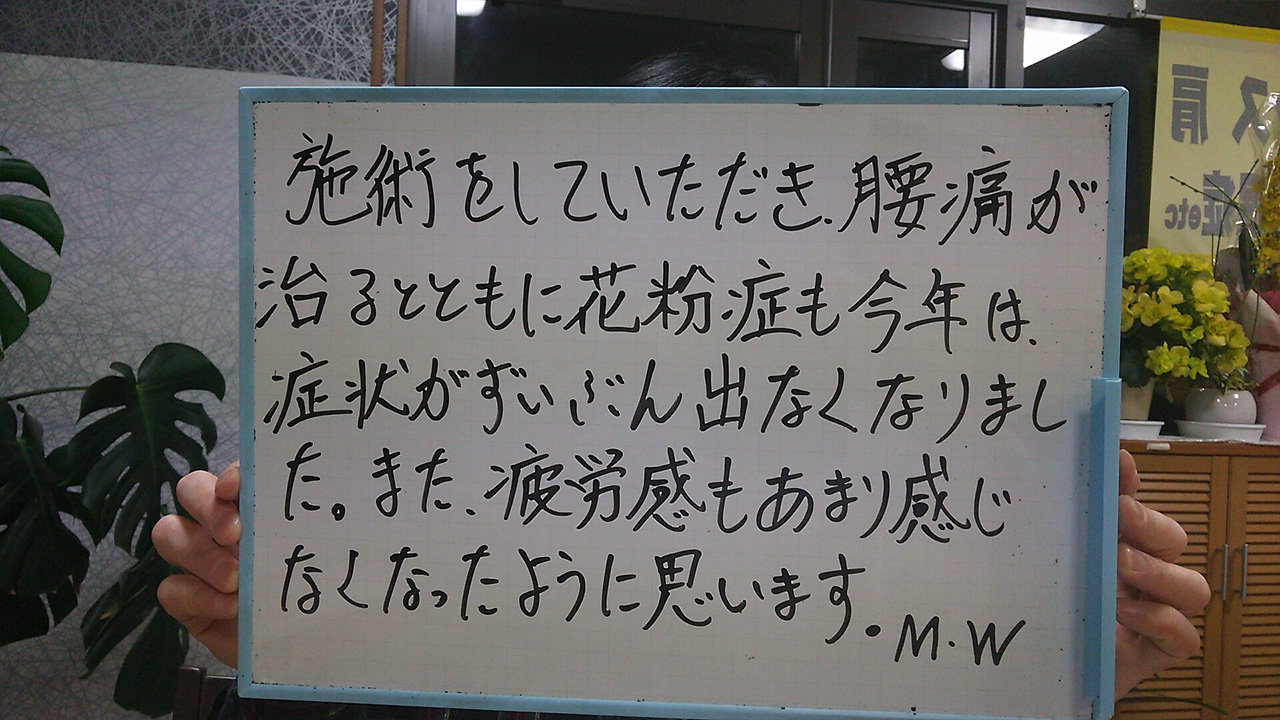 施術をしていただき、腰痛が
治るとともに花粉症も今年は、
症状がずいぶん出なくなりまし
た。また、疲労感もあまり感じ
なくなったように思います。
M・W
ス肩
症etc